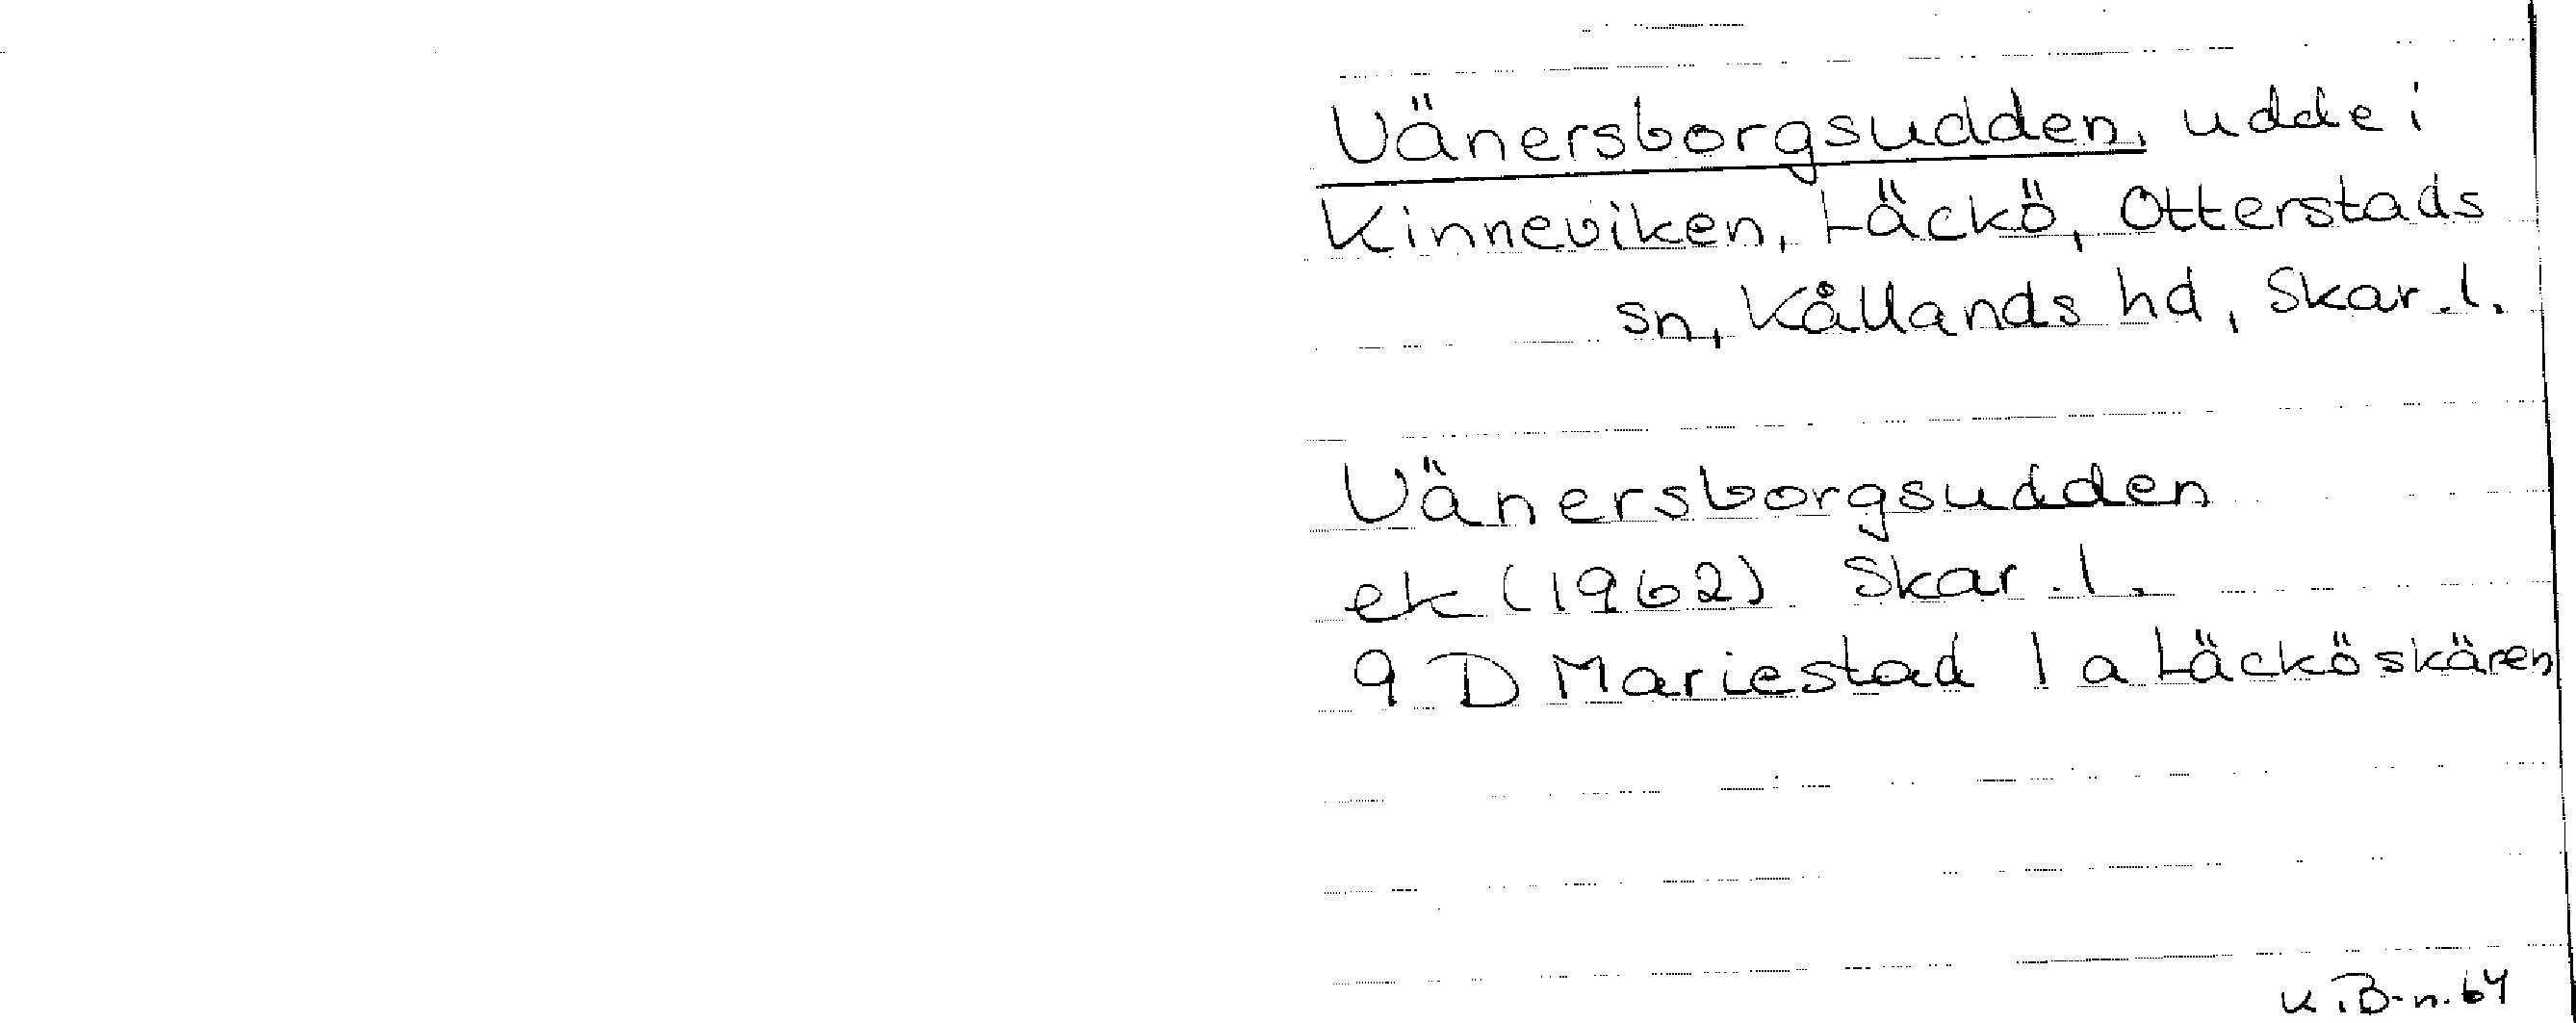 Vänersborgsudden, udde i
Kinneviken, Läckö, Otterstads
sn, Kållands hd, Skar.l.
Vänersborgsudden
ek (1962) Skar.l.
9 D Mariestad 1 a Läcköskären
K.B-n.64